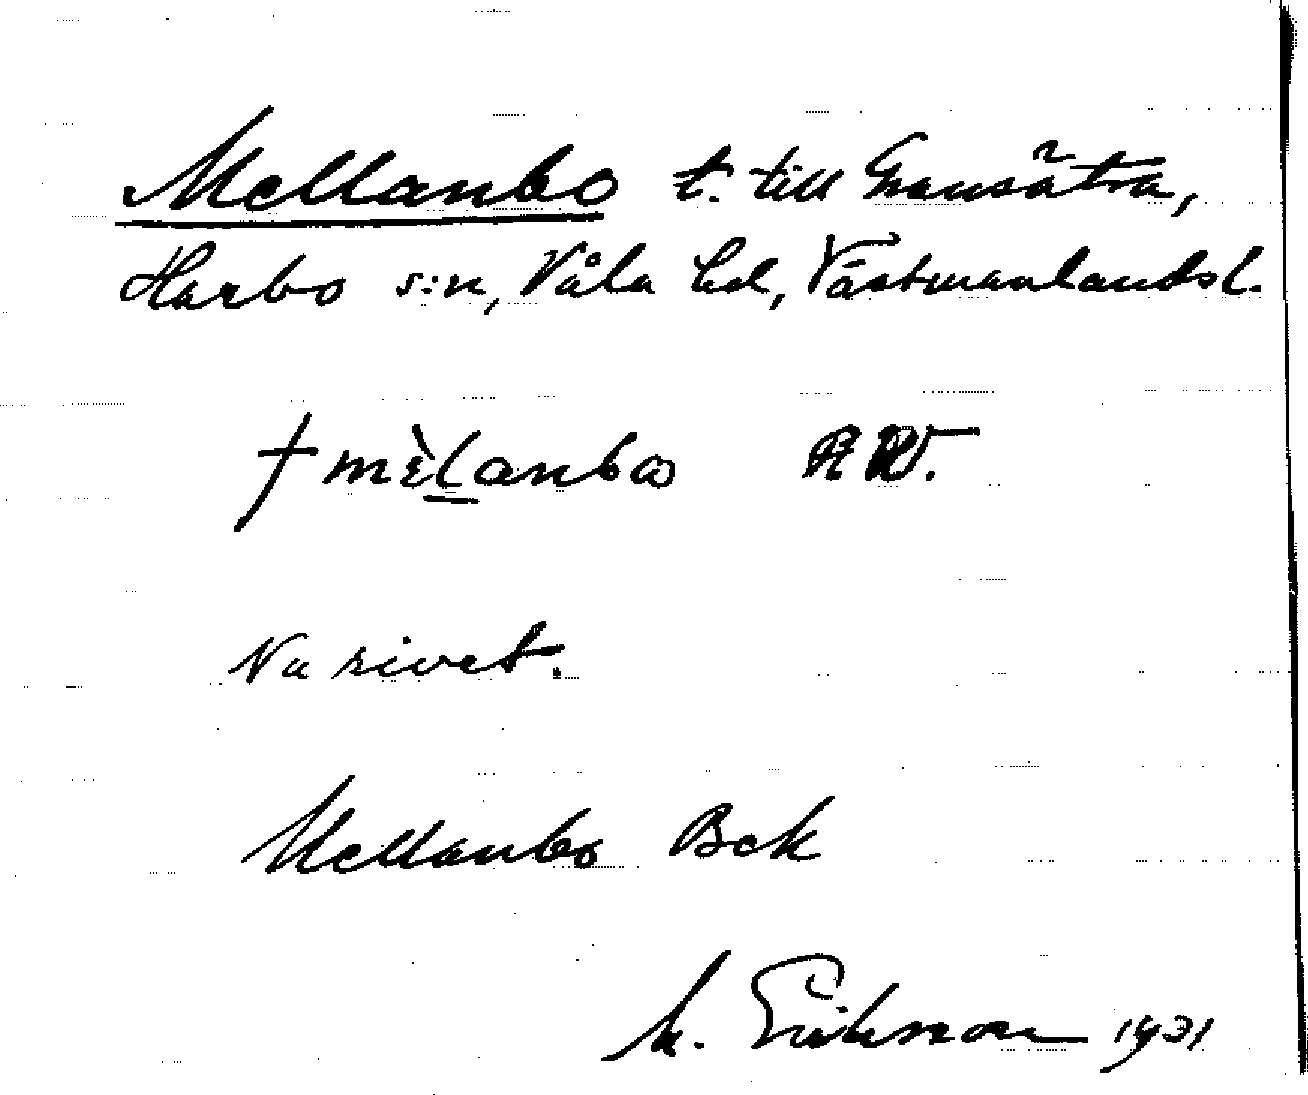 Mellanbo t. till Gransätra,
Harbo s:n, Våla hd, Västmanlandsl.
† mèlanbω R W.
Nu rivet.
Mellanbo Bek
M. Eriksson 1931